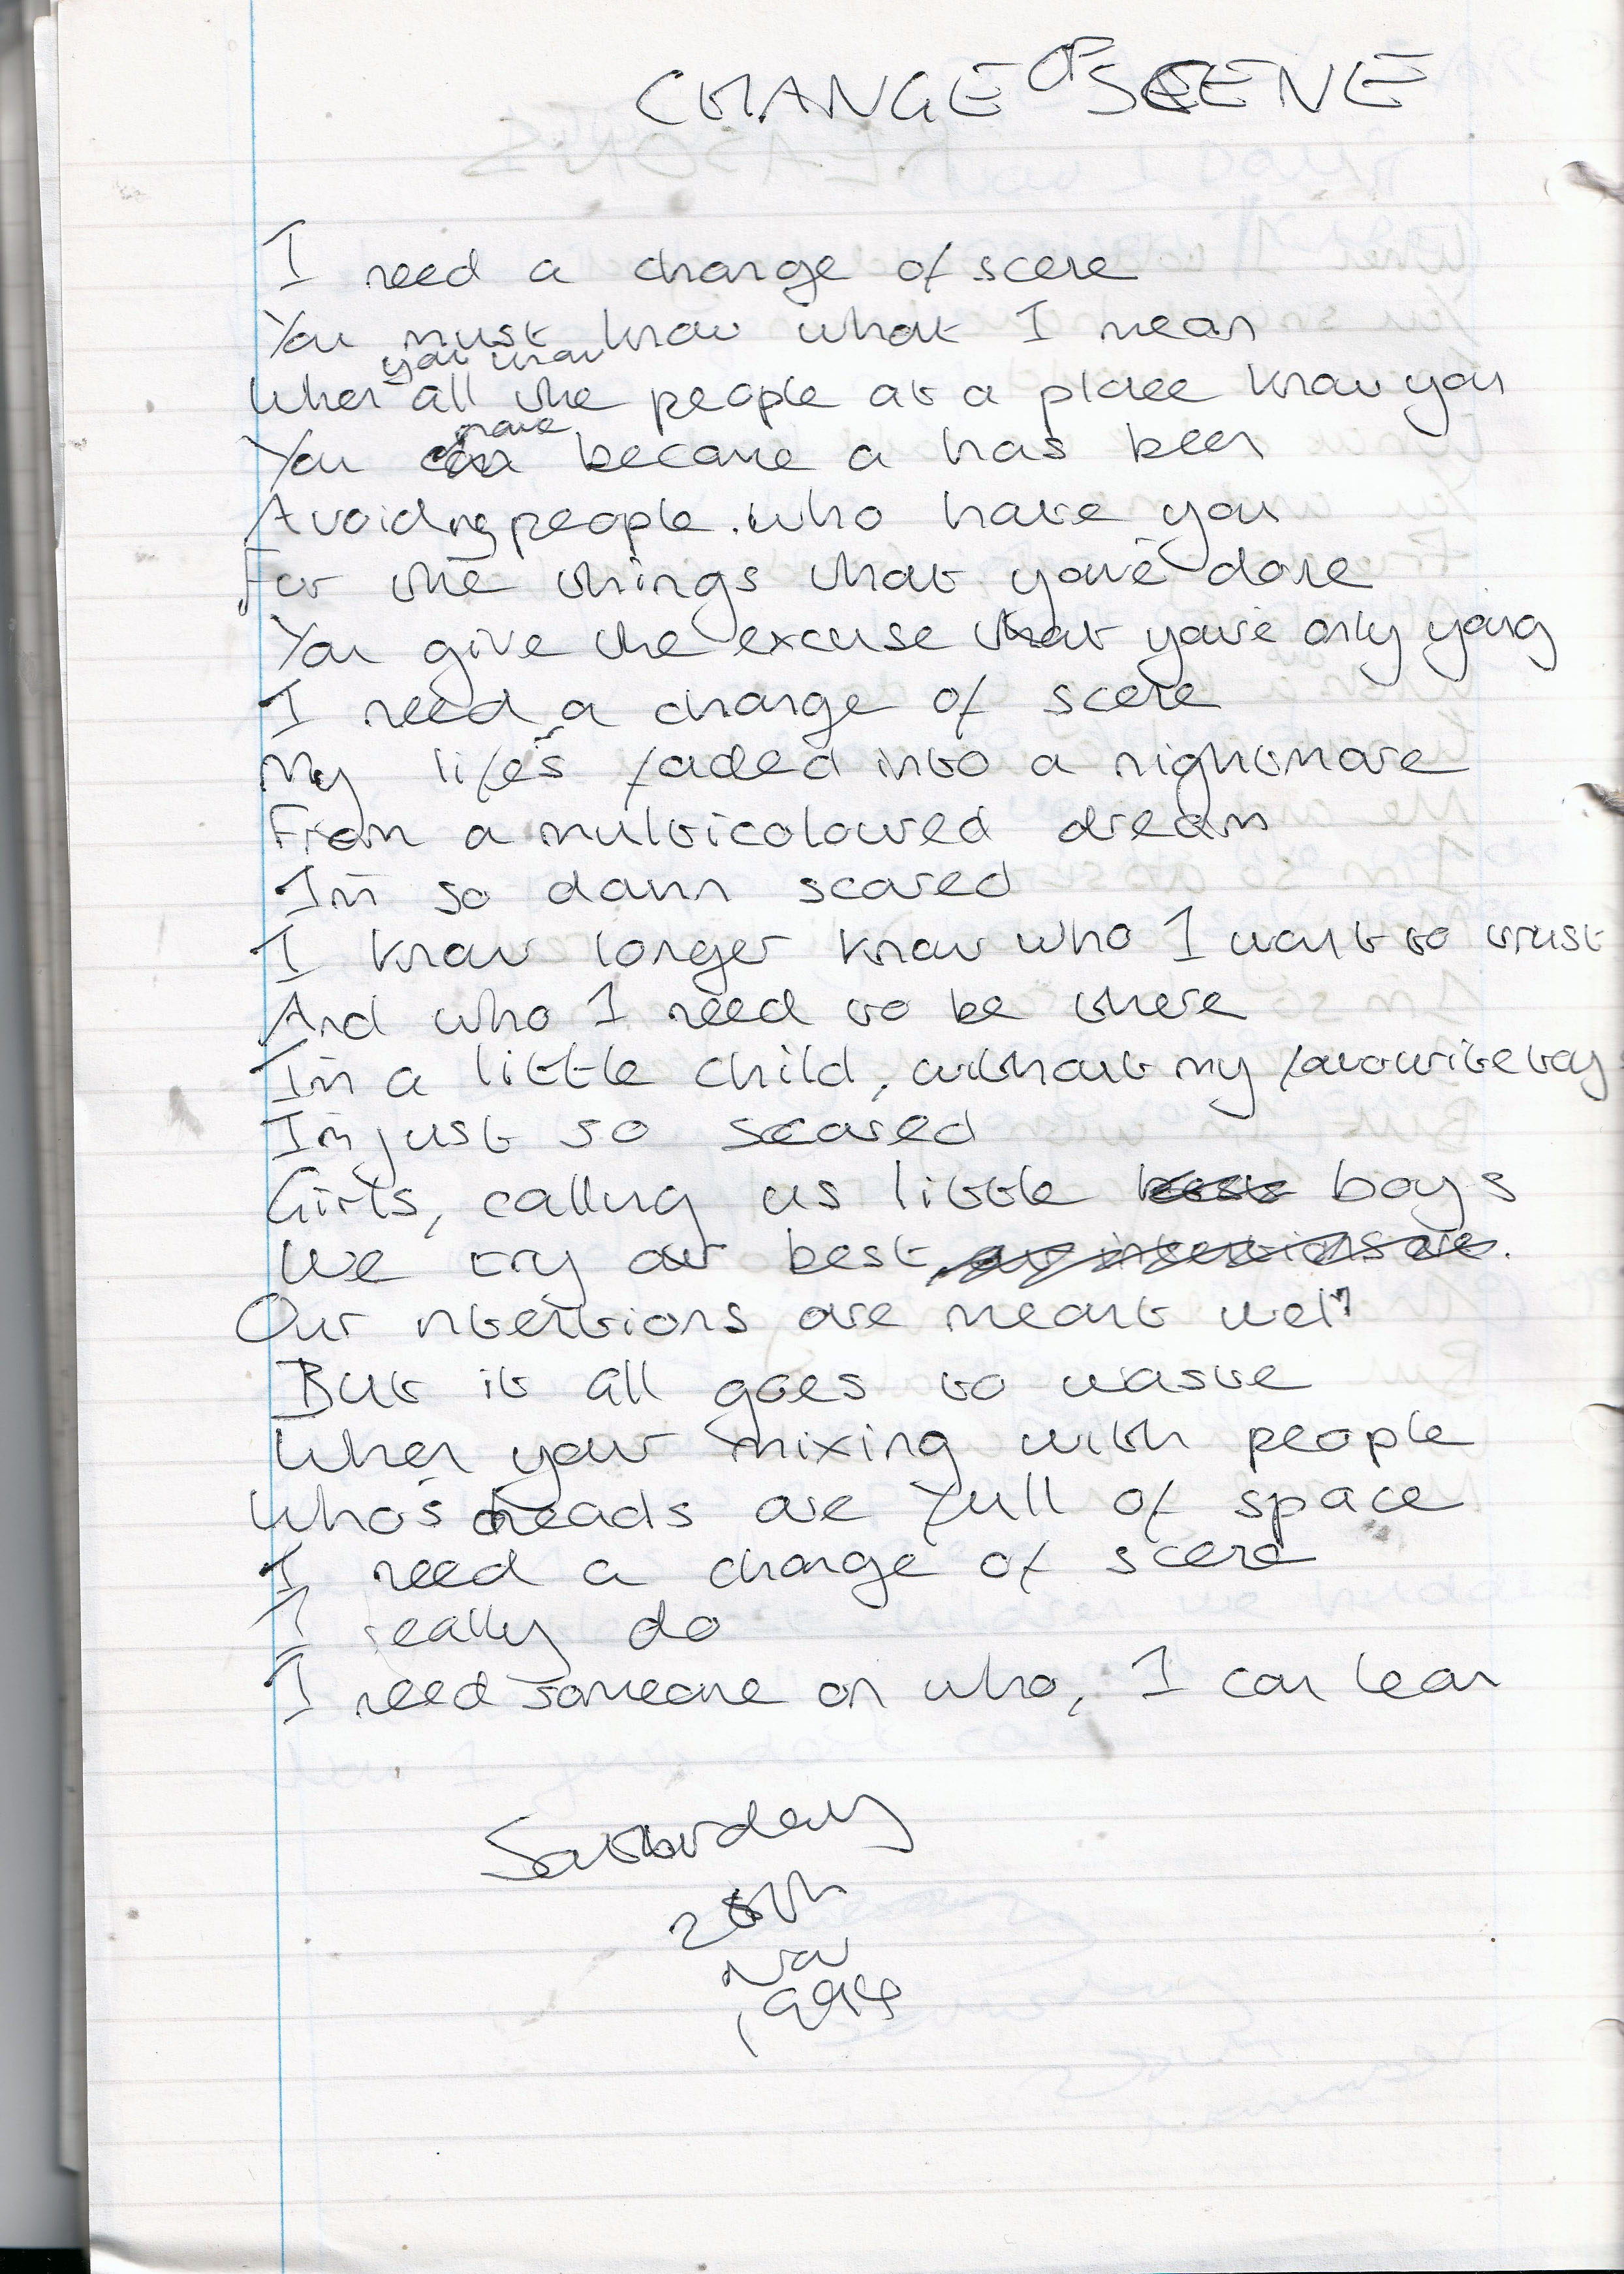 CHANGE OF SCENE
I need a change of scene
You must know what I mean
you know
When all the people at a place know you
have
You become a has been
Avoiding people who hate you
For the things that you've done
You give the excuse that you're only young
I need a change of scene
My life's faded into a nightmare
From a multicoloured dream
I'm so damn scared
I know longer know who I want to trust
And who I need to be there
I'm a little child, without my favourite toy
I'm just so scared
Girls, calling us little boys
We try our best
Our intentions are meant well
But it all goes to waste
When your mixing with people
Who's heads are full of space
I need a change of scene
I really do
I need someone on who, I can lean
Saturday
Nov
1994